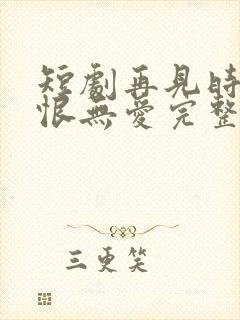 短劇再見時
恨無愛完整
三更笑